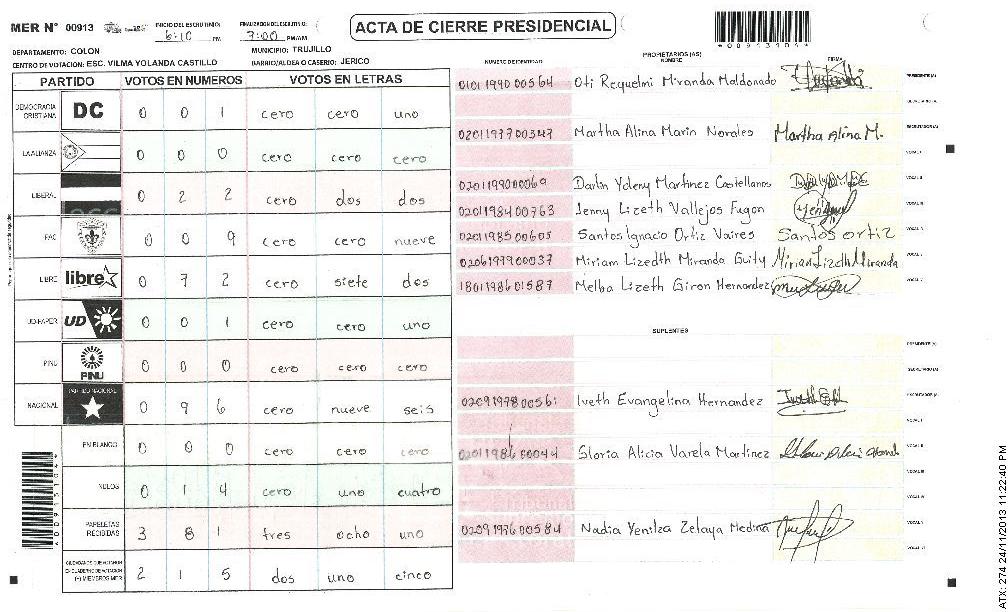 MER N° 00913 INICIO DEL ESCRUTINIO: 6:10 PM FINALIZACION DEL ESCRUTINIO: 7:00 PM/AM ACTA DE CIERRE PRESIDENCIAL
DEPARTAMENTO: COLON MUNICIPIO: TRUJILLO
CENTRO DE VOTACION: ESC. VILMA YOLANDA CASTILLO BARRIO/ALDEA O CASERIO: JERICO
PARTIDO VOTOS EN NUMEROS VOTOS EN LETRAS
DEMOCRACIA CRISTIANA DC 0 0 1 cero cero uno
LA ALIANZA 0 0 0 cero cero cero
LIBERAL 0 2 2 cero dos dos
PAC 0 0 9 cero cero nueve
LIBRE libre 0 7 2 cero siete dos
UD-FAPER UD 0 0 1 cero cero uno
PINU PINU 0 0 0 cero cero cero
NACIONAL PARTIDO NACIONAL 0 9 6 cero nueve seis
EN BLANCO 0 0 0 cero cero cero
NULOS 0 1 4 cero uno cuatro
PAPELETAS RECIBIDAS 3 8 1 tres ocho uno
CIUDADANOS QUE VOTARON EN CUADERNO DE VOTACION (+) MIEMBROS MER 2 1 5 dos uno cinco
NUMERO DE IDENTIDAD PROPIETARIOS (AS) NOMBRE FIRMA
0101 1990 00564 Oti Requelmi Miranda Maldonado PRESIDENTE (A)
SECRETARIO (A)
0201197700347 Martha Alina Marin Norales Martha Alina M. ESCRUTADOR (A)
VOCAL I
0201199000069 Darlin Ydeny Martinez Castellanos VOCAL II
0201198400763 Jenny Lizeth Vallejos Fugon VOCAL III
0201198500605 Santos Ignacio Ortiz Vaires Santos ortiz
0206197900037 Miriam Lizedth Miranda Guity Mirian Lizedth Miranda
1801198601587 Melba Lizeth Giron Hernandez
SUPLENTES
PRESIDENTE (A)
SECRETARIO (A)
02091978 0056 Iveth Evangelina Hernandez ESCRUTADOR (A)
VOCAL I
0201198600044 Gloria Alicia Varela Martinez VOCAL II
VOCAL III
VOCAL IV
0209197600584 Nadia Yenitza Zelaya Medina VOCAL V
VOCAL VI
ATX: 274 24/11/2013 11:22:40 PM